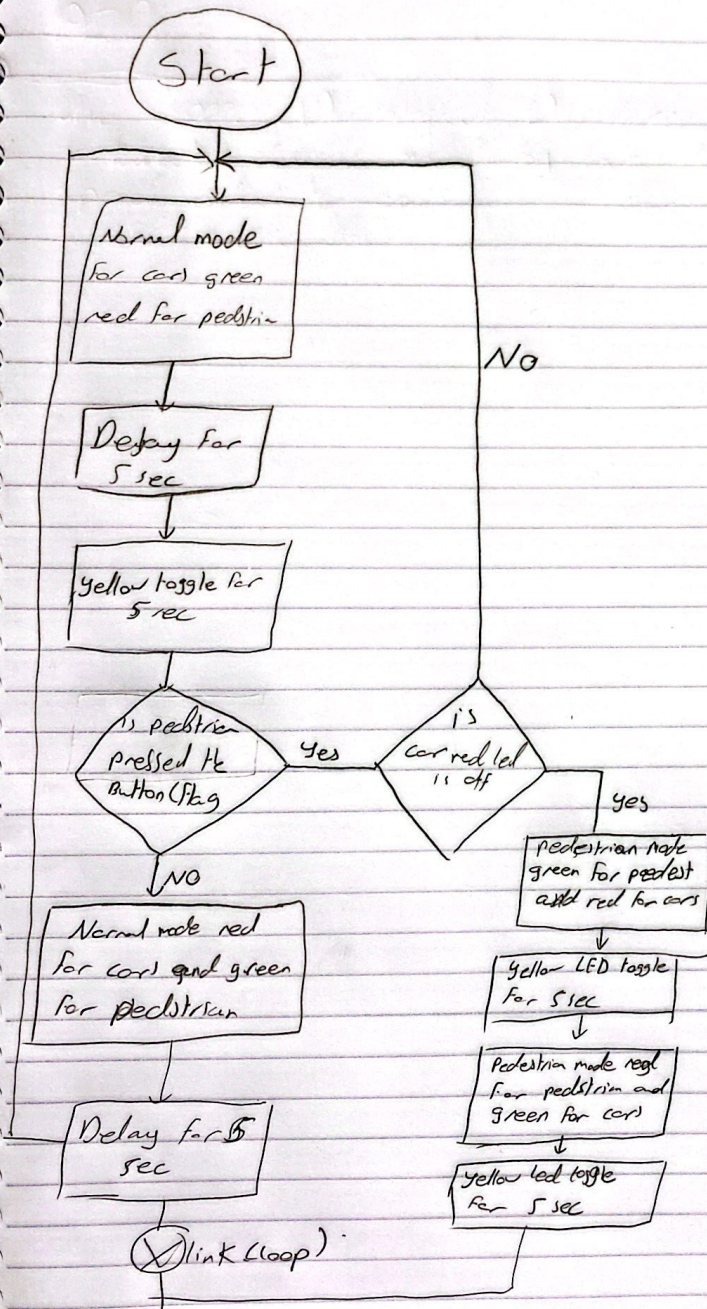 Start
Normal mode
for cars green
red for pedstrian
Delay for
5 sec
yellow toggle for
5 sec
is pedstrian
pressed the
Button (flag
Yes
No
is
car red led
is off
yes
NO
Normal mode red
for cars and green
for pedstrian
Delay for 5
sec
link (loop)
pedestrian mode
green for pedest
and red for cars
yellow LED toggle
for 5 sec
Pedestrian mode red
for pedstrian and
green for cars
yellow led toggle
for 5 sec